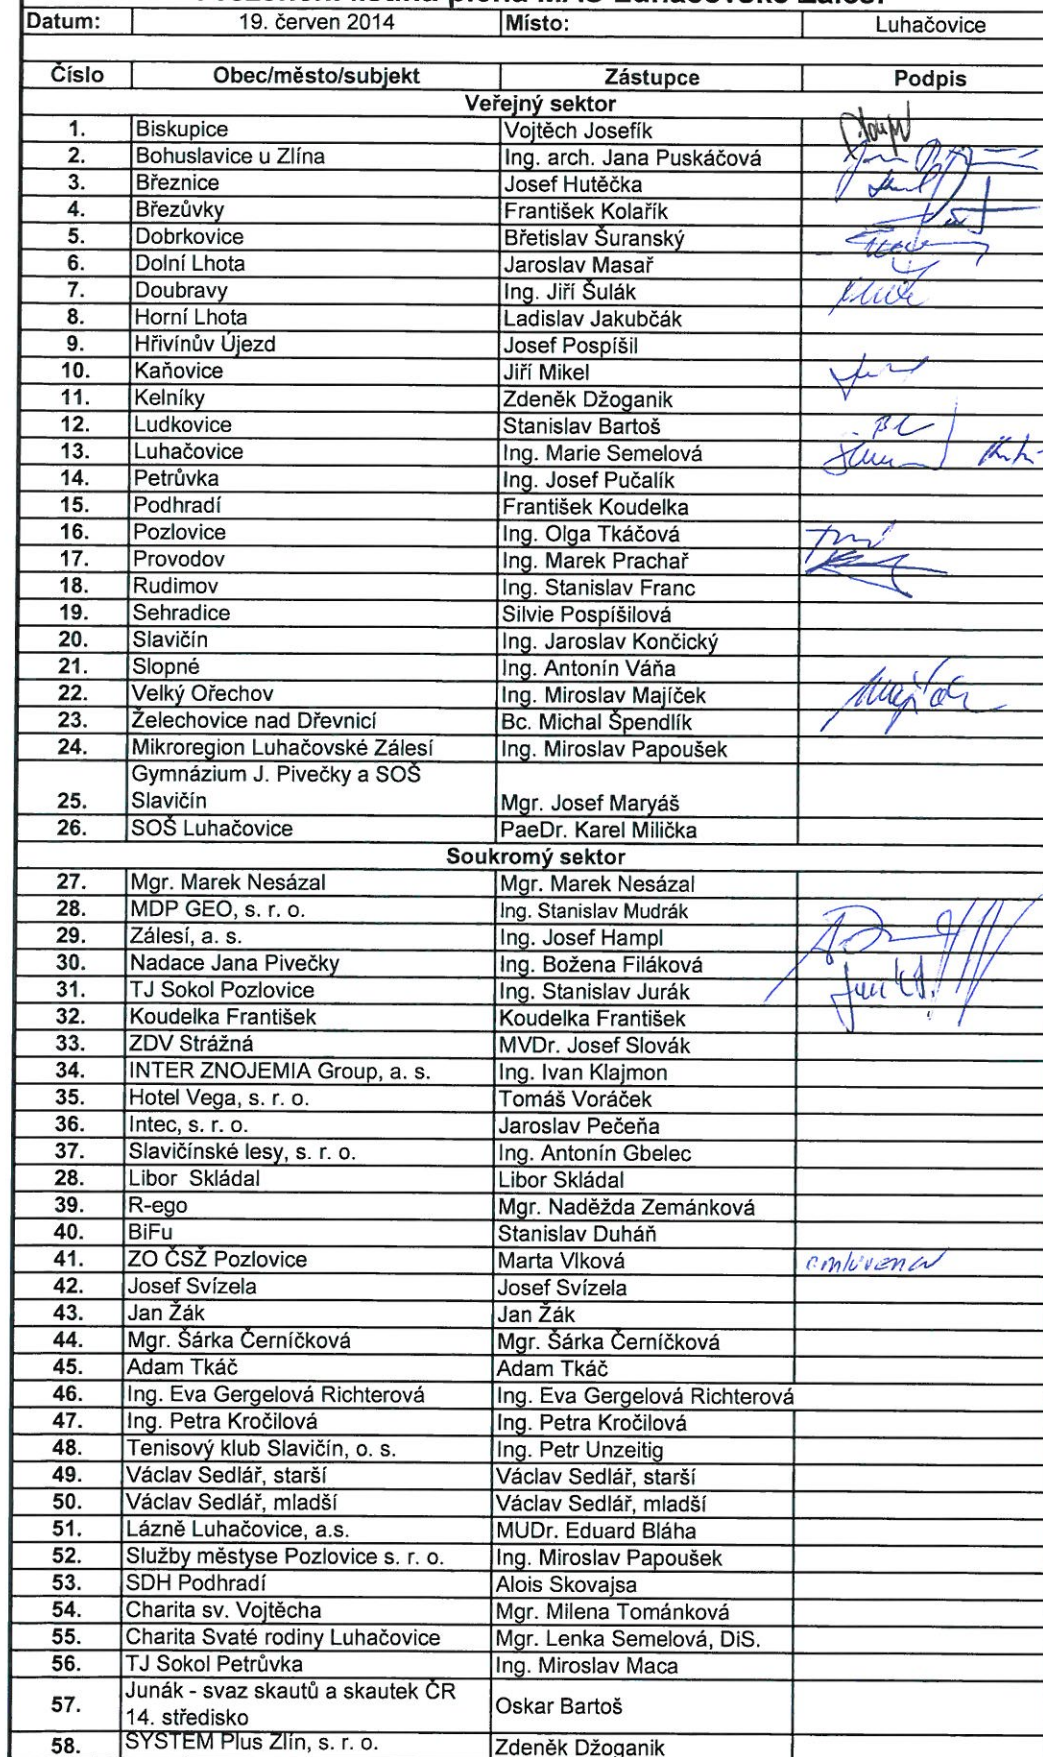 Datum: 19. červen 2014 Místo: Luhačovice
Číslo Obec/město/subjekt Zástupce Podpis
Veřejný sektor
1. Biskupice Vojtěch Josefík
2. Bohuslavice u Zlína Ing. arch. Jana Puskáčová
3. Březnice Josef Hutěčka
4. Březůvky František Kolařík
5. Dobrkovice Břetislav Šuranský
6. Dolní Lhota Jaroslav Masař
7. Doubravy Ing. Jiří Šulák
8. Horní Lhota Ladislav Jakubčák
9. Hřivínův Újezd Josef Pospíšil
10. Kaňovice Jiří Mikel
11. Kelníky Zdeněk Džoganik
12. Ludkovice Stanislav Bartoš
13. Luhačovice Ing. Marie Semelová
14. Petrůvka Ing. Josef Pučalík
15. Podhradí František Koudelka
16. Pozlovice Ing. Olga Tkáčová
17. Provodov Ing. Marek Prachař
18. Rudimov Ing. Stanislav Franc
19. Sehradice Silvie Pospíšilová
20. Slavičín Ing. Jaroslav Končický
21. Slopné Ing. Antonín Váňa
22. Velký Ořechov Ing. Miroslav Majíček
23. Želechovice nad Dřevnicí Bc. Michal Špendlík
24. Mikroregion Luhačovské Zálesí Ing. Miroslav Papoušek
Gymnázium J. Pivečky a SOŠ
25. Slavičín Mgr. Josef Maryáš
26. SOŠ Luhačovice PaeDr. Karel Milička
Soukromý sektor
27. Mgr. Marek Nesázal Mgr. Marek Nesázal
28. MDP GEO, s. r. o. Ing. Stanislav Mudrák
29. Zálesí, a. s. Ing. Josef Hampl
30. Nadace Jana Pivečky Ing. Božena Filáková
31. TJ Sokol Pozlovice Ing. Stanislav Jurák
32. Koudelka František Koudelka František
33. ZDV Strážná MVDr. Josef Slovák
34. INTER ZNOJEMIA Group, a. s. Ing. Ivan Klajmon
35. Hotel Vega, s. r. o. Tomáš Voráček
36. Intec, s. r. o. Jaroslav Pečeňa
37. Slavičínské lesy, s. r. o. Ing. Antonín Gbelec
28. Libor Skládal Libor Skládal
39. R-ego Mgr. Naděžda Zemánková
40. BiFu Stanislav Duháň
41. ZO ČSŽ Pozlovice Marta Vlková omluvena
42. Josef Svízela Josef Svízela
43. Jan Žák Jan Žák
44. Mgr. Šárka Černíčková Mgr. Šárka Černíčková
45. Adam Tkáč Adam Tkáč
46. Ing. Eva Gergelová Richterová Ing. Eva Gergelová Richterová
47. Ing. Petra Kročilová Ing. Petra Kročilová
48. Tenisový klub Slavičín, o. s. Ing. Petr Unzeitig
49. Václav Sedlář, starší Václav Sedlář, starší
50. Václav Sedlář, mladší Václav Sedlář, mladší
51. Lázně Luhačovice, a.s. MUDr. Eduard Bláha
52. Služby městyse Pozlovice s. r. o. Ing. Miroslav Papoušek
53. SDH Podhradí Alois Skovajsa
54. Charita sv. Vojtěcha Mgr. Milena Tománková
55. Charita Svaté rodiny Luhačovice Mgr. Lenka Semelová, DiS.
56. TJ Sokol Petrůvka Ing. Miroslav Maca
Junák - svaz skautů a skautek ČR
57. 14. středisko Oskar Bartoš
58. SYSTEM Plus Zlín, s. r. o. Zdeněk Džoganik